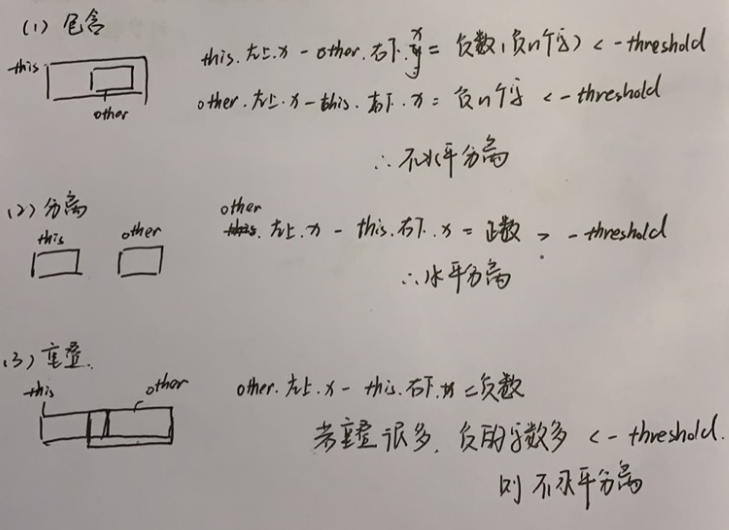 (1) 包含
this. 左上.x - other. 右下.x = 负数(负n个字) < -threshold
this
other. 左上.x - this. 右下.x = 负n个字 < -threshold
other
∴ 不水平分离
(2) 分离
this other
other. 左上.x - this.右下.x = 正数 > -threshold
∴ 水平分离
(3) 重叠.
this other
other. 左上.x - this.右下.x = 负数
若重叠很多, 负的字数多 < -threshold.
则 不水平分离